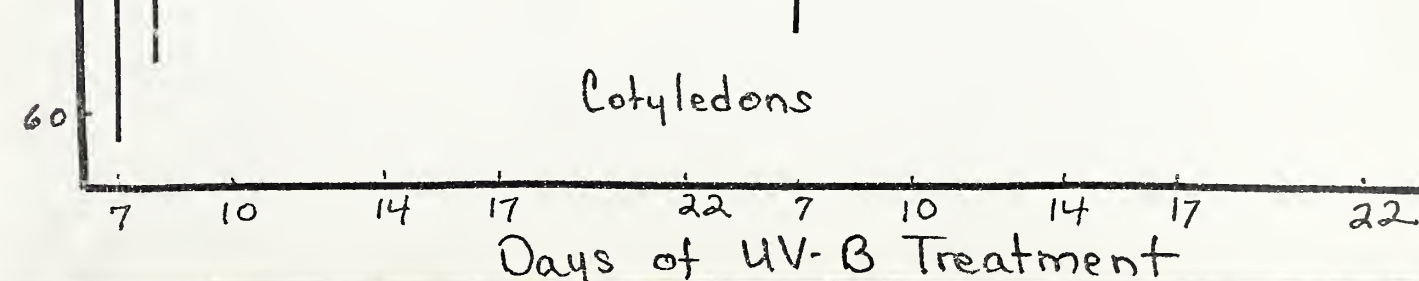 Cotyledons
60
7 10 14 17 22 7 10 14 17 22
Days of UV-B Treatment